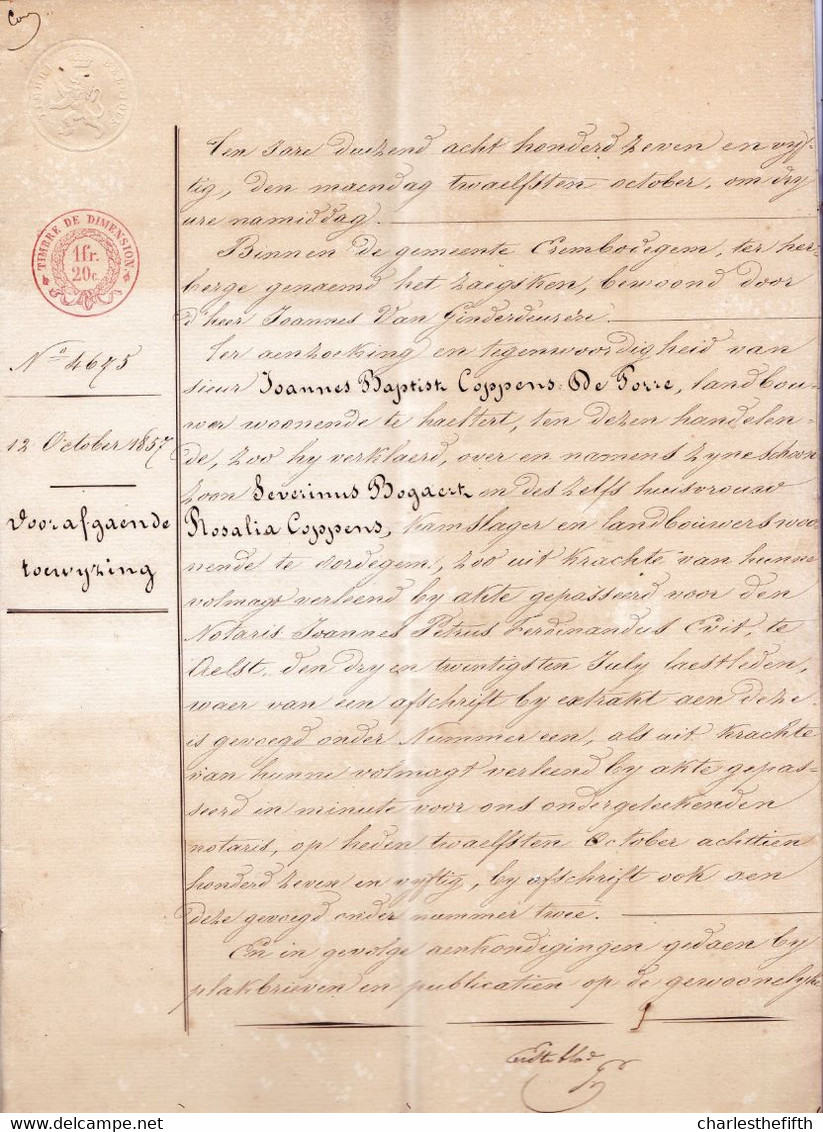 TIMBRE DE DIMENSION
1 fr.
20 c.
No 4675
12 October 1857
Voorafgaende
toewyzing
Ten Jare duizend acht honderd zeven en vyf-
tig, den maendag twaelfsten october, om dry
ure namiddag.
Binnen de gemeente Erembodegem, ter her-
berge genaemd het zaegsken, bewoond door
d'heer Joannes Van Ginderdeuren.
Ter aenzoeking en tegenwoordigheid van
sieur Joannes Baptist Coppens-De Porre, landbou-
wer woonende te haeltert, ten dezen handelen-
de, zoo hy verklaerd, over en namens zyne schoon
zoon Severinus Bogaert en des zelfs huisvrouw
Rosalia Coppens, kamslager en landbouwers woo-
nende te oordegem, zoo uit krachte van hunne
volmagt verleend by akte gepasseerd voor den
Notaris Joannes Petrus Ferdinandus Evit, te
Aelst, den dry en twintigsten July laestleden,
waer van een afschrift by extrakt aen deze
is gevoegd onder Nummer een, als uit krachte
van hunne volmagt verleend by akte gepas-
seerd in minute voor ons ondergeteekenden
notaris, op heden twaelfsten October achttien
honderd zeven en vyftig, by afschrift ook aen
deze gevoegd onder nummer twee.
En in gevolge aenkondigingen gedaen by
plakbrieven en publicatien op de gewoonelyke
charlesthefifth